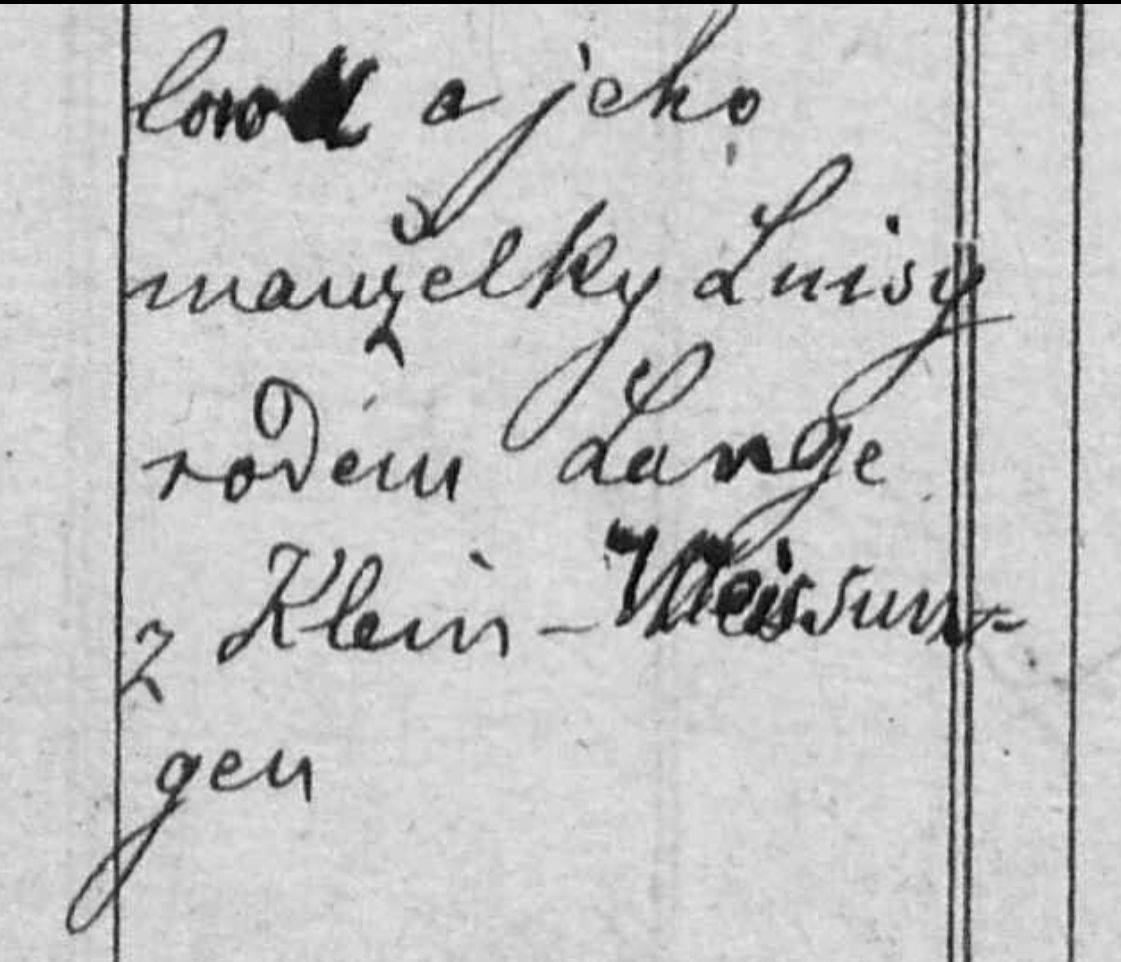 a jeho
manželky Luisy
rodem Lange
z Klein - Weissun-
gen